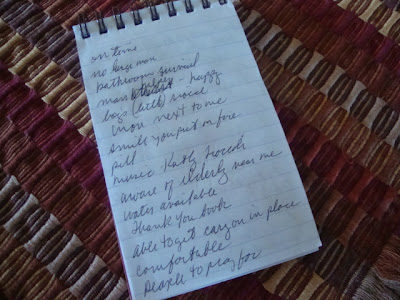 on time
no large man
bathroom survival
man - happy
boys (little) vocal
mom next to me
smile you put on fire
pill
music Kathy Troccoli
aware of elderly near me
water available
Thank you book
able to get carry on in place
comfortable
People to pray for